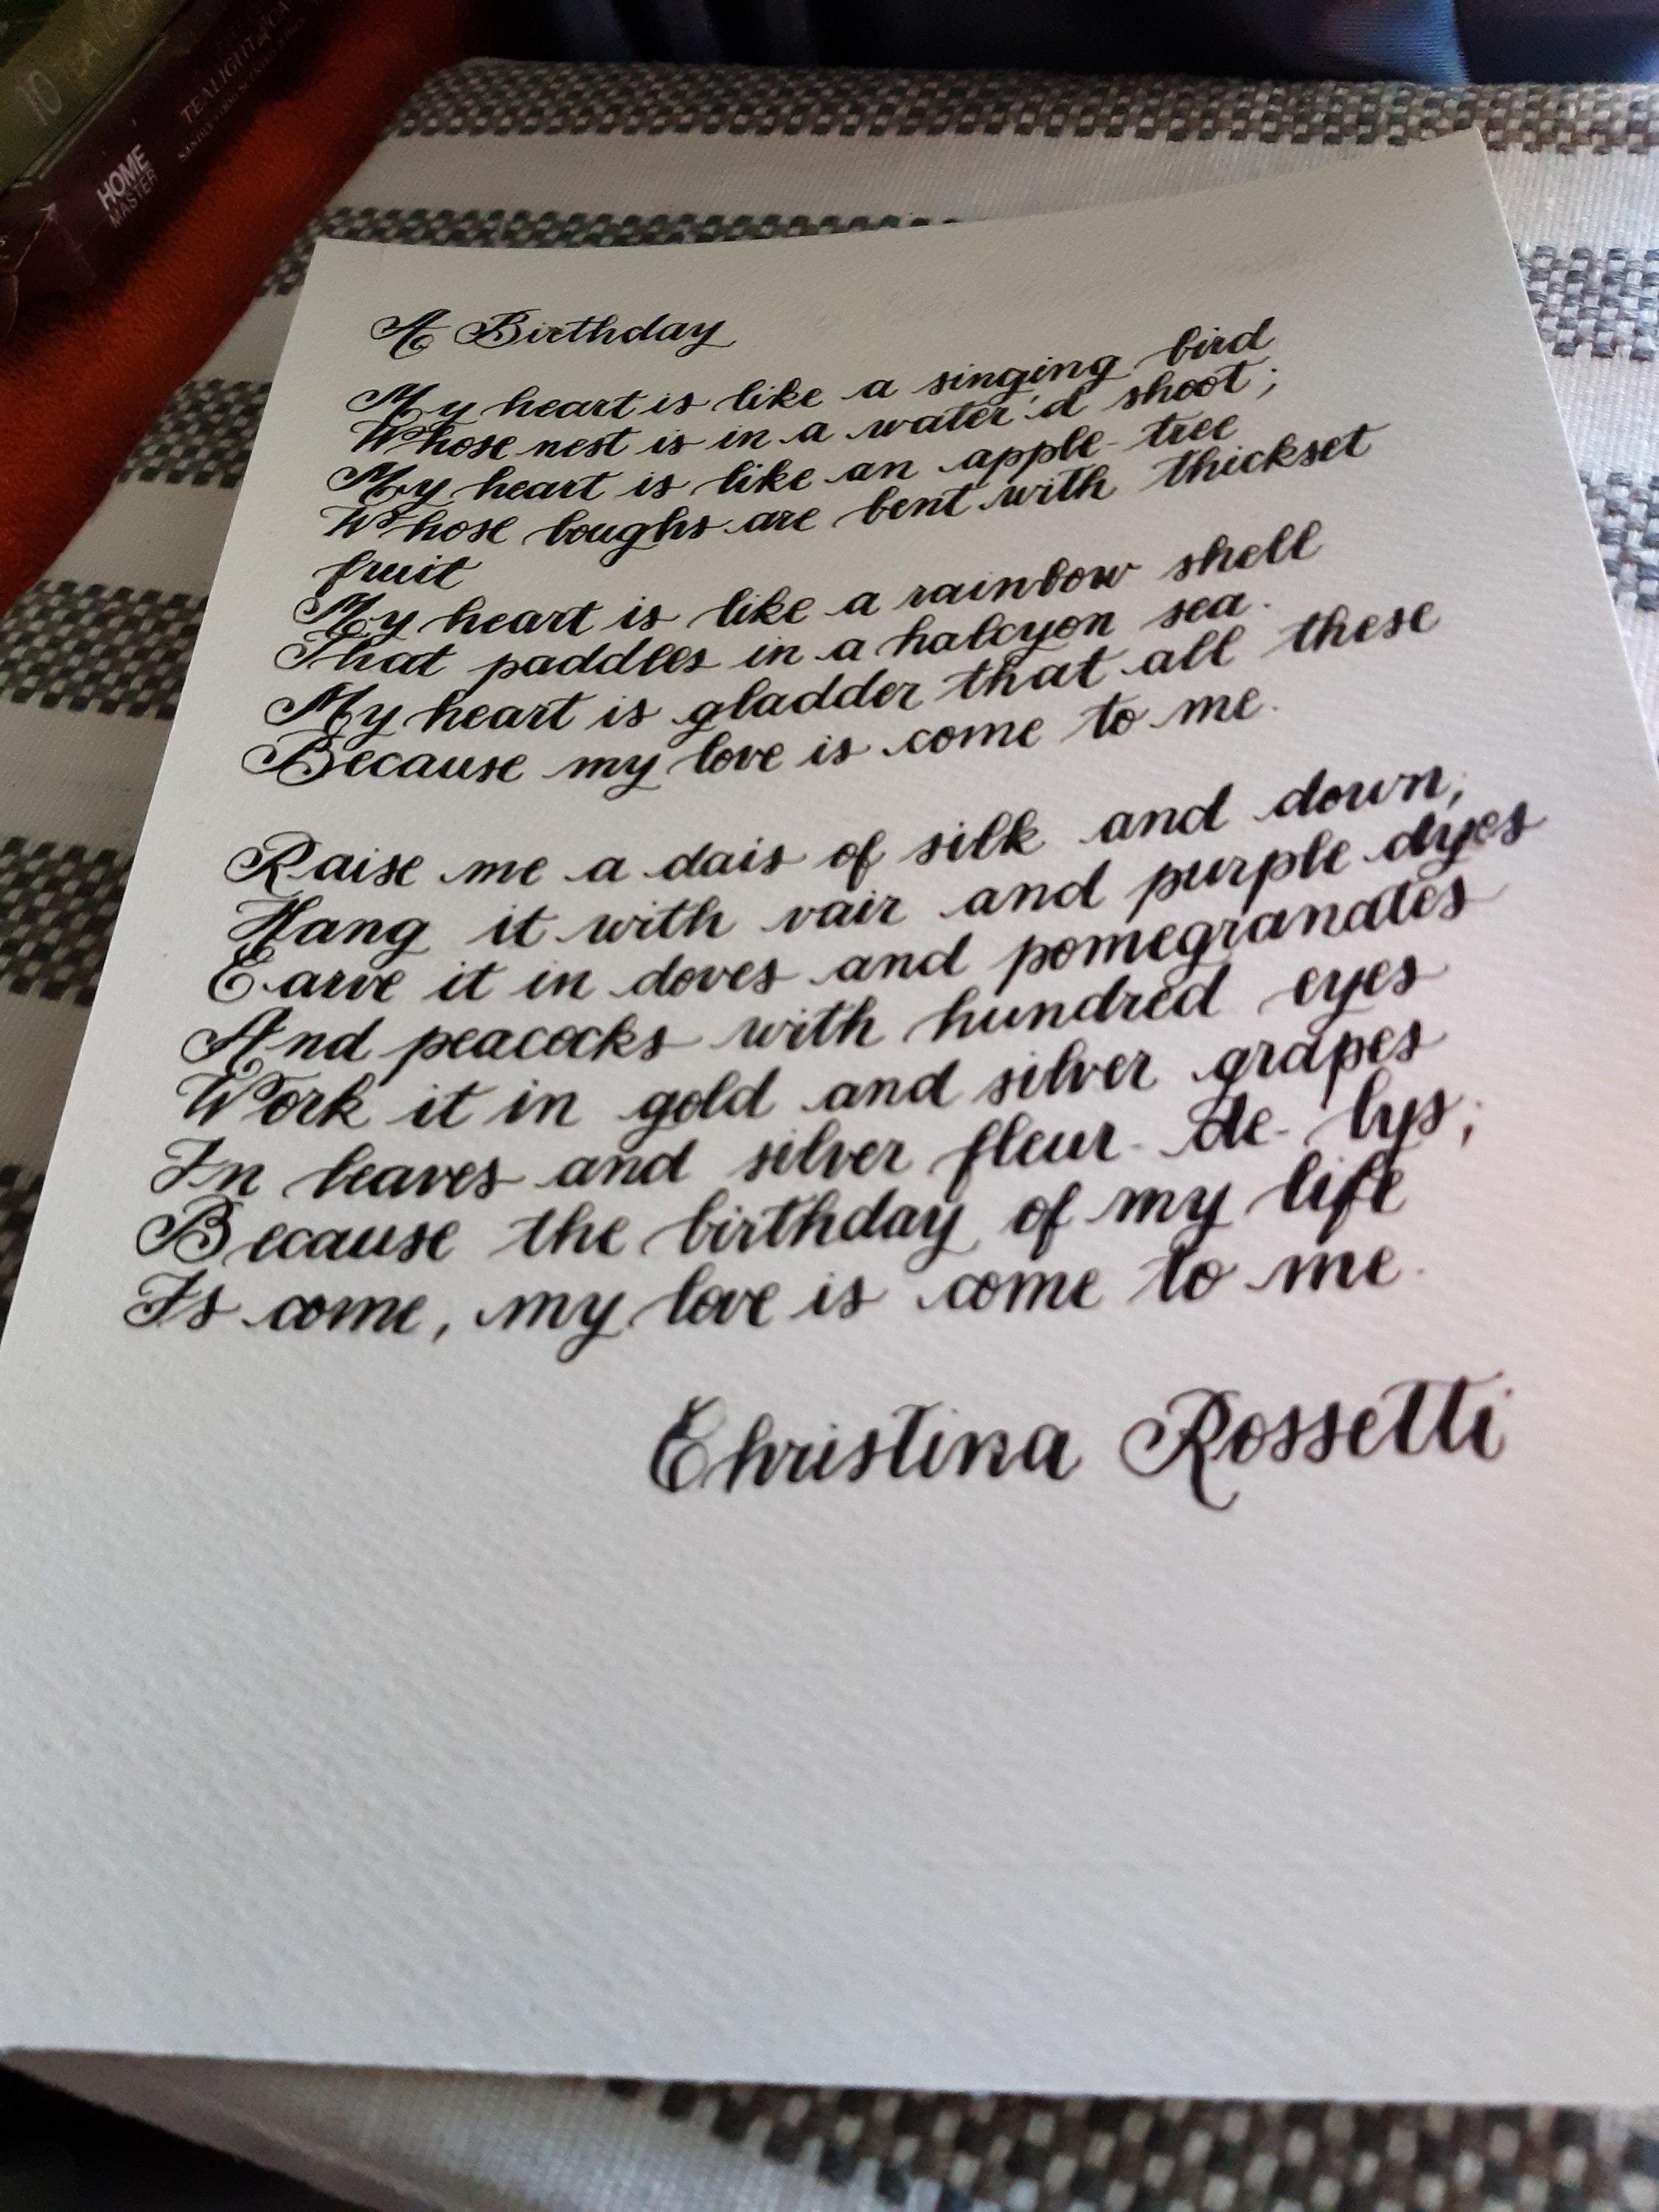 10
HOME
MASTER
TEALIGHT
A Birthday
My heart is like a singing bird
Whose nest is in a water'd shoot;
My heart is like an apple-tree
Whose boughs are bent with thickset
fruit
My heart is like a rainbow shell
That paddles in a halcyon sea.
My heart is gladder that all these
Because my love is come to me.
Raise me a dais of silk and down;
Hang it with vair and purple dyes
Carve it in doves and pomegranates
And peacocks with hundred eyes
Work it in gold and silver grapes
In leaves and silver fleur-de-lys;
Because the birthday of my life
Is come, my love is come to me.
Christina Rossetti